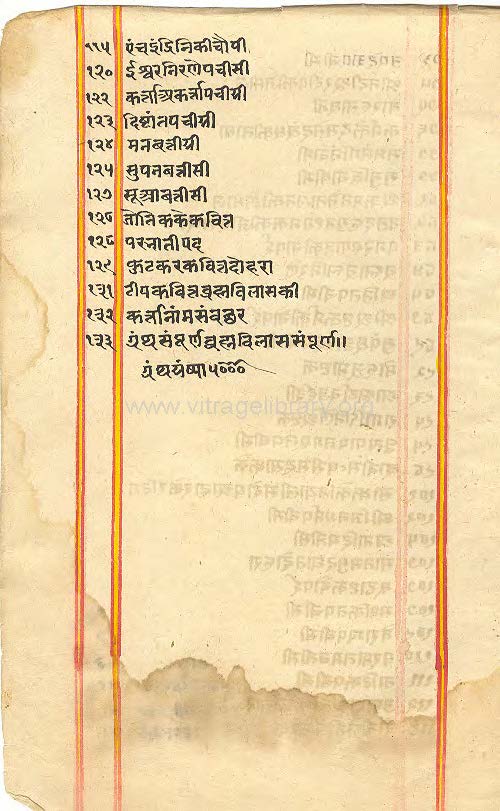 ११५ पंचइंद्रिनिकीचौपी
१२० ईश्वरनिरणेपचीसी
१२२ कर्त्ताअकर्त्तापचीसी
१२३ दिष्टांतपचीसी
१२४ मनबत्तीसी
१२५ सुपनबत्तीसी
१२७ सूआबत्तीसी
१२८ कवित्त
१२८ परनातीपद
१२९ फुटकरकवित्तदोहरा
१३१ टीपकवित्तब्रह्मविलासकी
१३२ कर्त्तानांमसंवछर
१३३ ग्रंथसंपूर्णब्रह्मविलाससंपूर्ण॥
ग्रंथसंष्या५०००
www.vitragelibrary.org